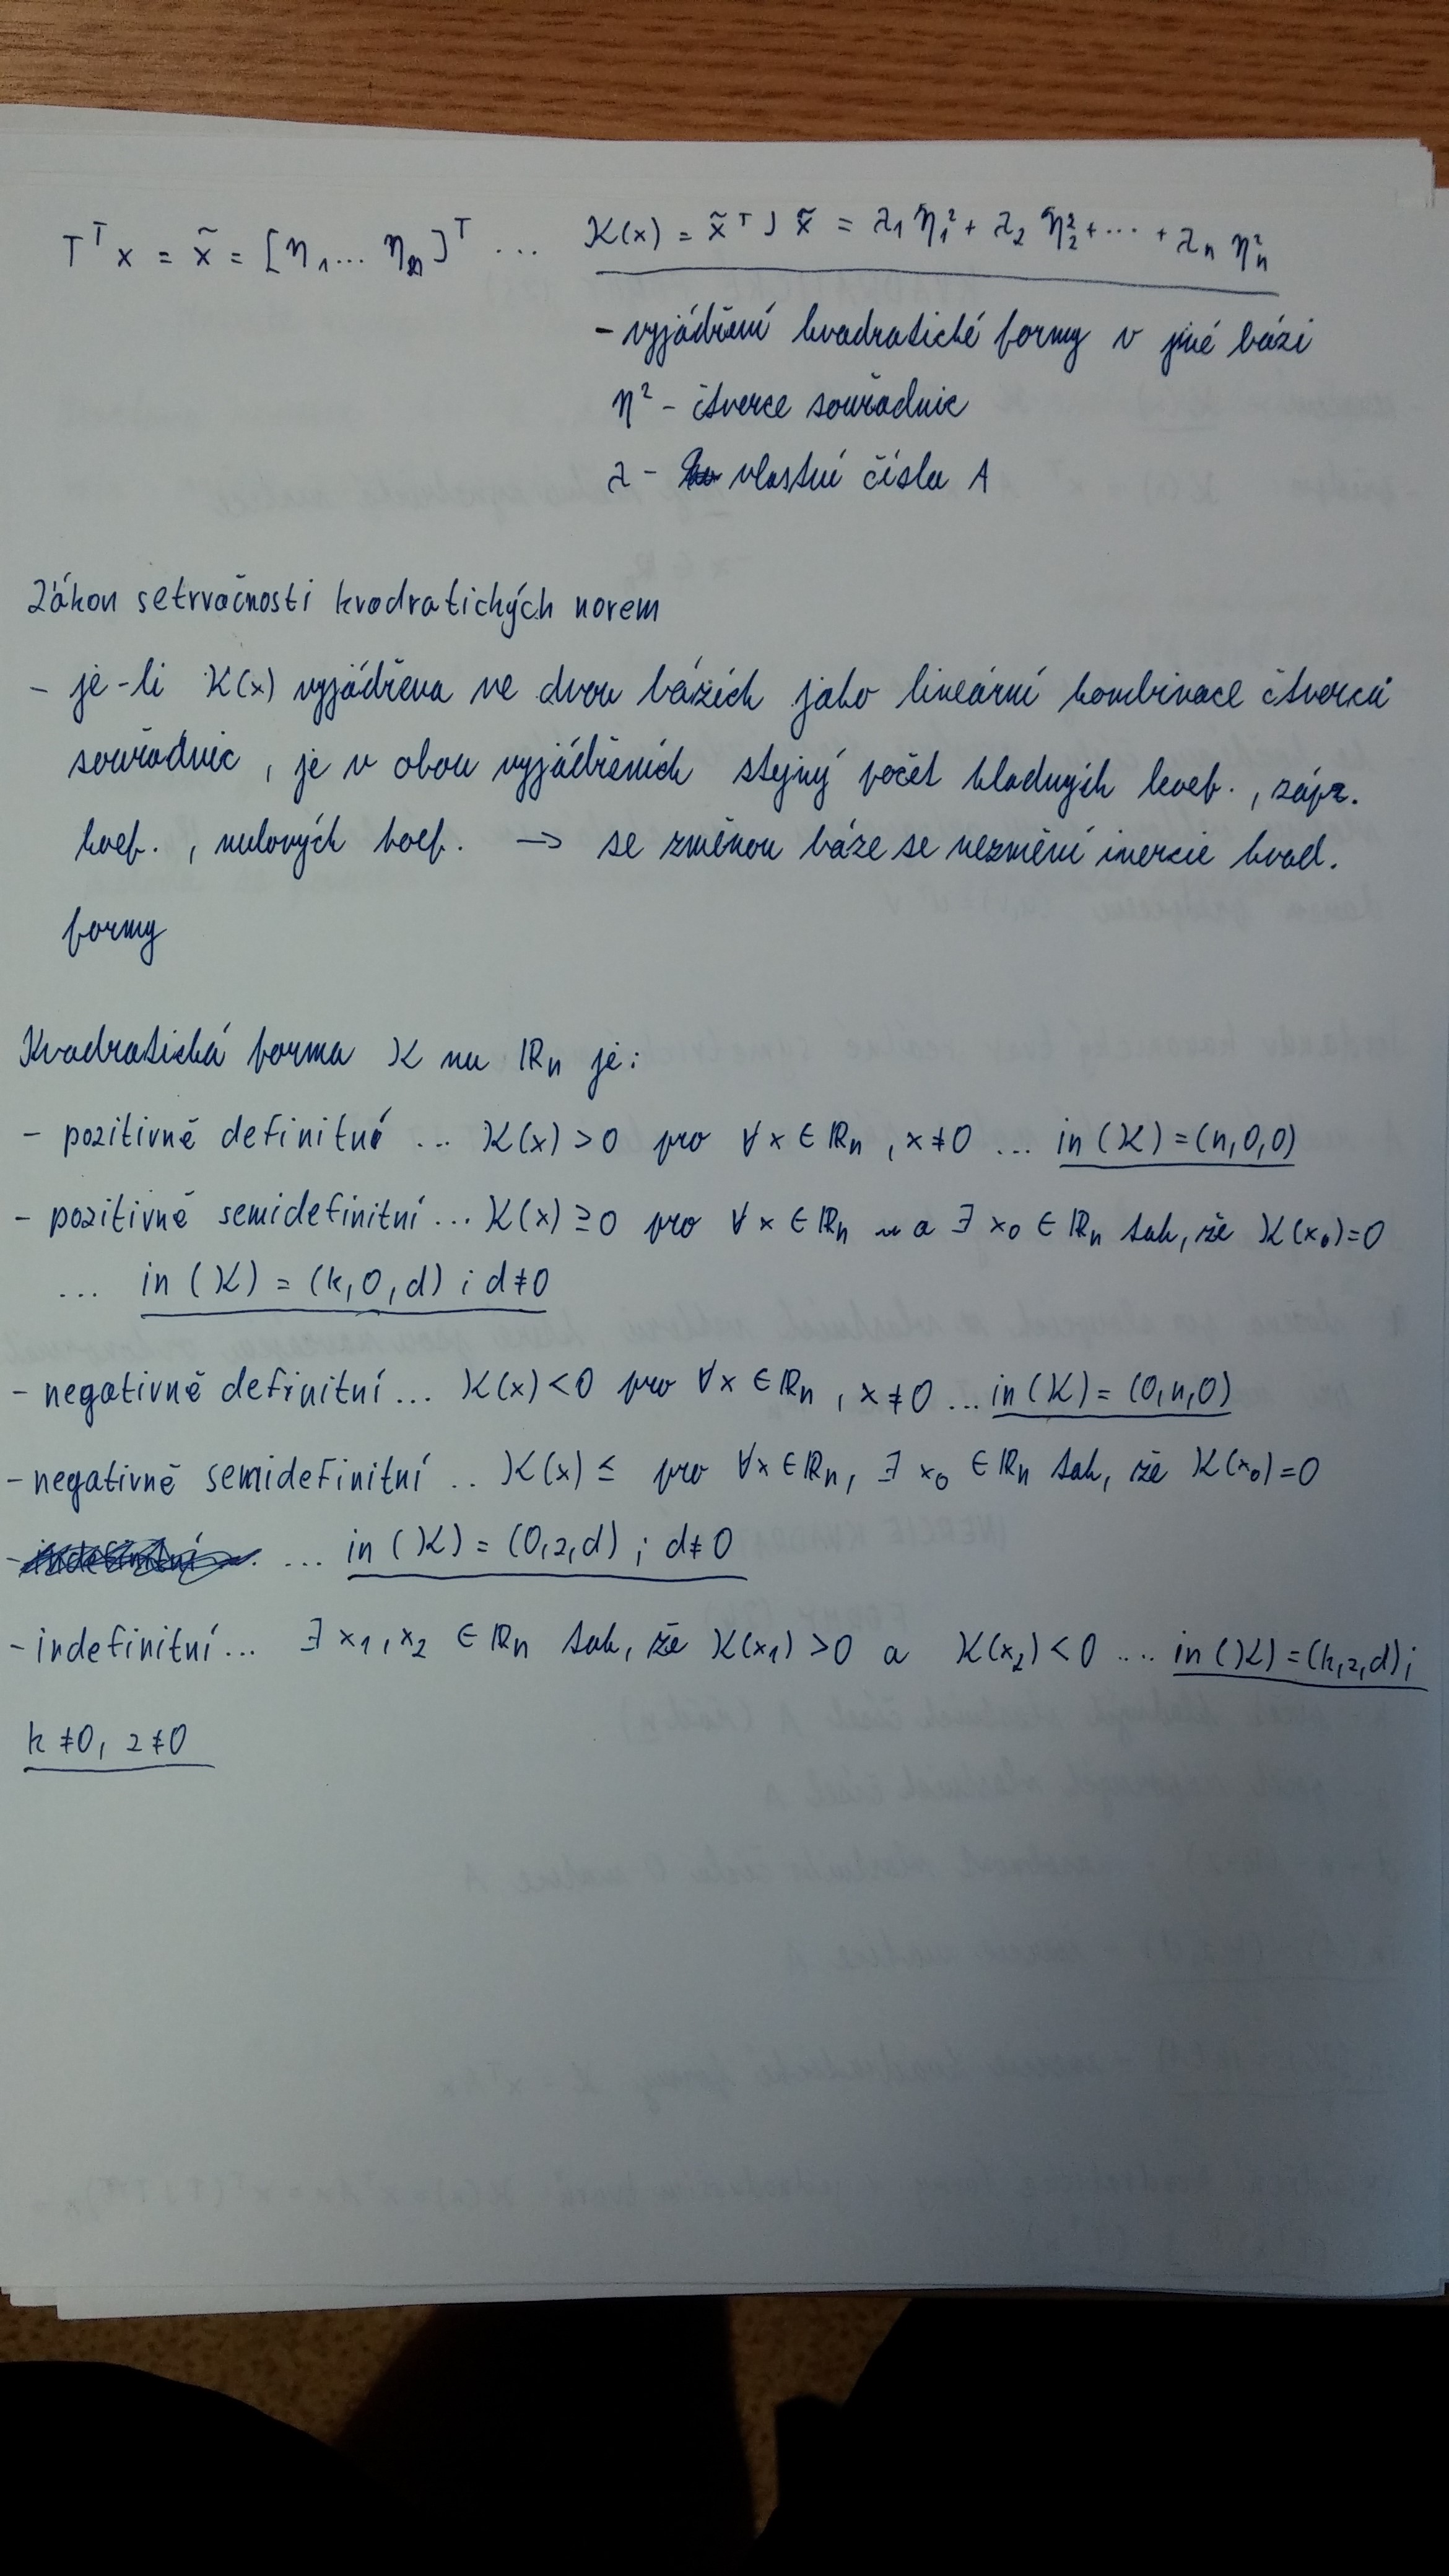 Tᵀx = x̃ = [η₁... ηₙ]ᵀ ... 𝒦(x) = x̃ᵀ J x̃ = λ₁ η₁² + λ₂ η₂² + ... + λₙ ηₙ²
- vyjádření kvadratické formy v jiné bázi
η² - čtverce souřadnic
λ - vlastní čísla A
Zákon setrvačnosti kvadratických norem
- je-li 𝒦(x) vyjádřena ve dvou bázích jako lineární kombinace čtverců
souřadnic, je v obou vyjádřeních stejný počet kladných koef., zápr.
koef., nulových koef. → se změnou báze se nezmění inercie kvad.
formy
Kvadratická forma 𝒦 na ℝₙ je:
- pozitivně definitní ... 𝒦(x) > 0 pro ∀x ∈ ℝₙ, x ≠ 0 ... in(𝒦) = (n,0,0)
- pozitivně semidefinitní ... 𝒦(x) ≥ 0 pro ∀x ∈ ℝₙ a ∃ x₀ ∈ ℝₙ tak, že 𝒦(x₀)=0
... in(𝒦) = (k,0,d) ; d≠0
- negativně definitní ... 𝒦(x) < 0 pro ∀x ∈ ℝₙ, x ≠ 0 ... in(𝒦) = (0,n,0)
- negativně semidefinitní .. 𝒦(x) ≤ pro ∀x ∈ ℝₙ, ∃ x₀ ∈ ℝₙ tak, že 𝒦(x₀)=0
... in(𝒦) = (0,z,d) ; d≠0
- indefinitní ... ∃ x₁, x₂ ∈ ℝₙ tak, že 𝒦(x₁) > 0 a 𝒦(x₂) < 0 .... in(𝒦) = (k,z,d) ;
k ≠0, z ≠0